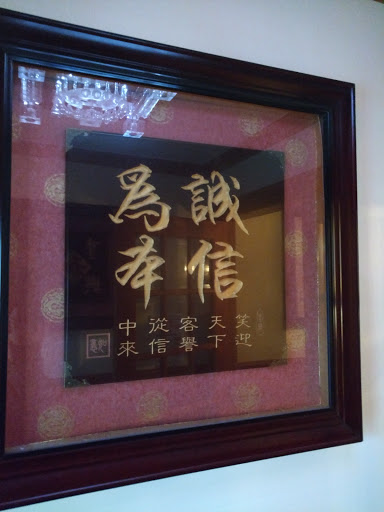 誠信
為本
笑迎
天下
客譽
從信
中來